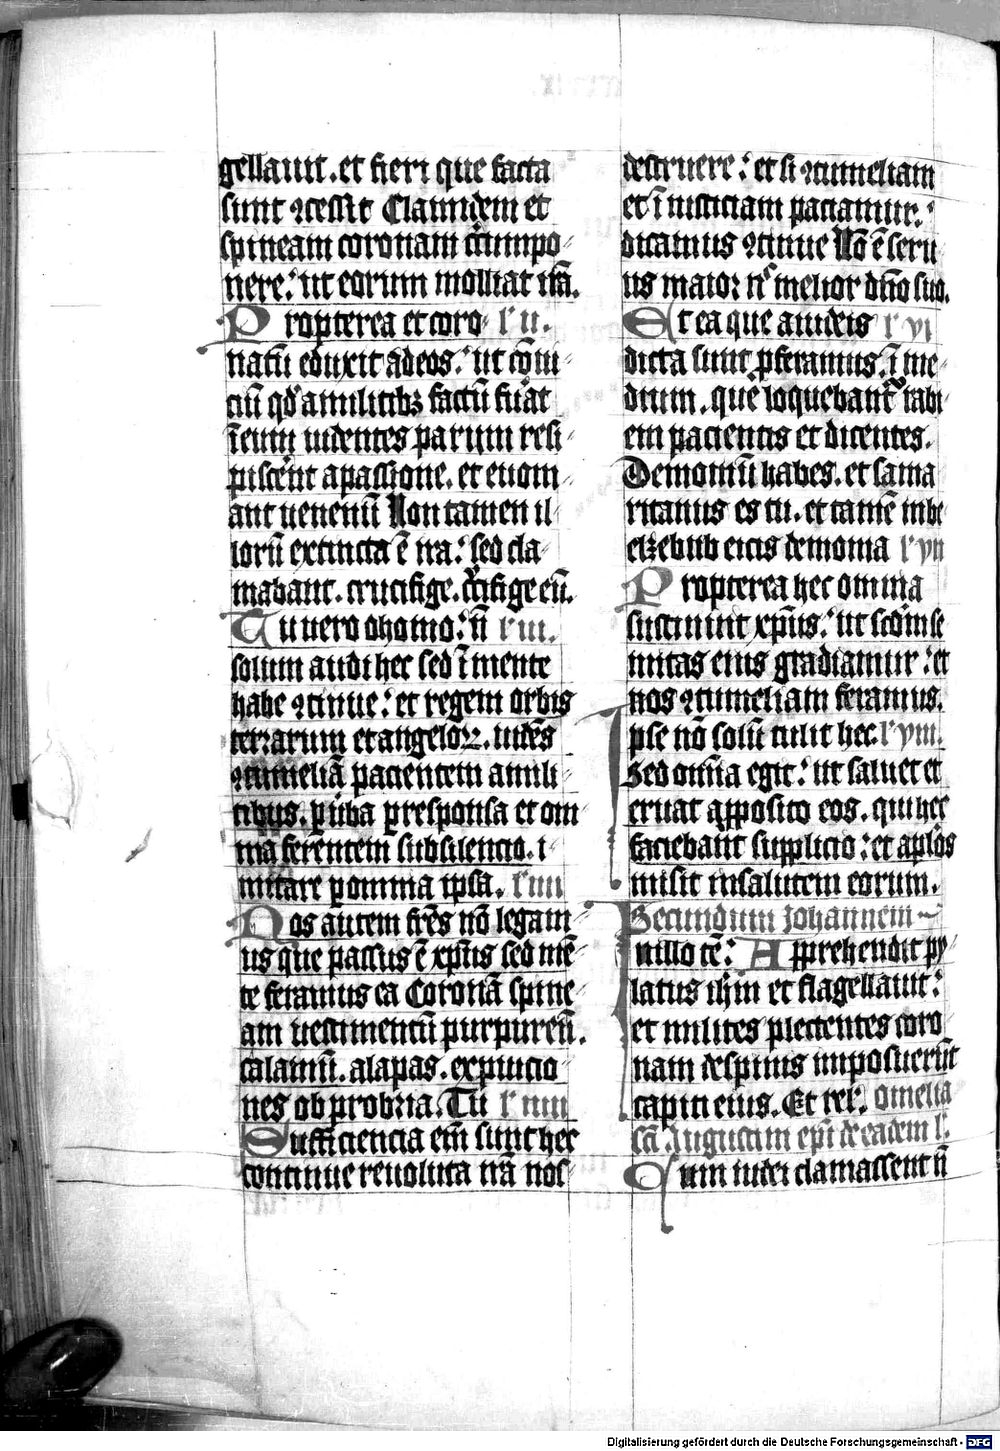 gellauit . et fieri que facta
sunt ꝯcessit Clamidem et
spineam coronam circumpo-
nere : ut eorum molliat irā .
Propterea et coro- l' ii .
natū eduxit ad eos : ut cōui-
ciū qd' a militibꝫ factū fu̅at
ī eum uidentes parum resi-
piscēnt a passione . et euom-
ant uenenū Non tamen il-
lorū extincta ē ira : sed cla-
mabant . crucifige . cru̅cifige eū .
Tu uero o homo : nō l' iii .
solum audi hec sed ī mente
habe ꝯtinue : et regem orbis
terrarum et angeloꝝ . uidēs
ꝯtumeliā pacientem a mili-
tibus . p̱ uba p̱ responsa et om-
nia ferentem sub silencio . i-
mitare p̱ omnia ipsa . l' iiii
Nos autem frēs nō legam
us que passus ē xp̄us sed mē-
te feramus ea Coronā spine-
am uestimentū purpureū .
calamū . alapas . expuicio
nes obprobria . Tu l' iiiii
Sufficiencia em̄ sunt hec
continue reuoluta irā nos-
destruere : et si ꝯtumeliam
et ī iusticiam paciamur :
dicamus ꝯtinue Nō ē seru
us maior n̄ melior dn̄o suo .
Et ea que audeis l' vi
dicta sunt p̱feramus . ī me-
dium . que loquebant' rabi-
em pacientis et dicentes .
Demoniū habes . et sama
ritanus es tu . et tamē in be
elzebub eicis demonia l' vii
Propterea hec omnia
sustinuit xp̄us : ut scdm se
mitas eius gradiamur : et
nos ꝯtumeliam feramus .
Ipse nō solū tulit hec . l' viii .
Sed omīa egit : ut saluet et
eruat apposito eos . qui hec
faciebant supplicio : et aplōs
misit in salutem eorum .
Secundum Johannem
In illo tē : Apprehendit py-
latus ih̄m et flagellauit :
et milites plectentes coro
nam de spinis imposuerūt
capiti eius . Et rel' . Omelia
sc̄i Augustini ep̄i de eadem l' .
Cum iudei clamassent nō
Digitalisierung gefördert durch die Deutsche Forschungsgemeinschaft - DFG